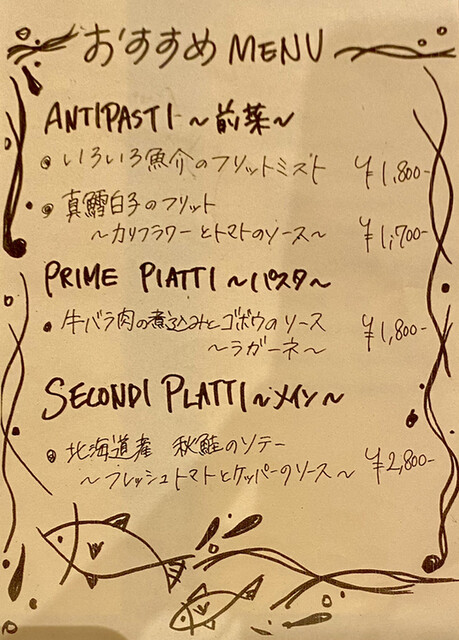 おすすめ MENU
ANTIPASTI ～前菜～
• いろいろ魚介のフリットミスト ¥1,800-
• 真鱈白子のフリット
～カリフラワーとトマトのソース～ ¥1,700-
PRIME PIATTI ～パスタ～
• 牛バラ肉の煮込みとゴボウのソース ¥1,800-
～ラガーネ～
SECONDI PLATTI ～メイン～
• 北海道産 秋鮭のソテー
～フレッシュトマトとケッパーのソース～ ¥2,800-